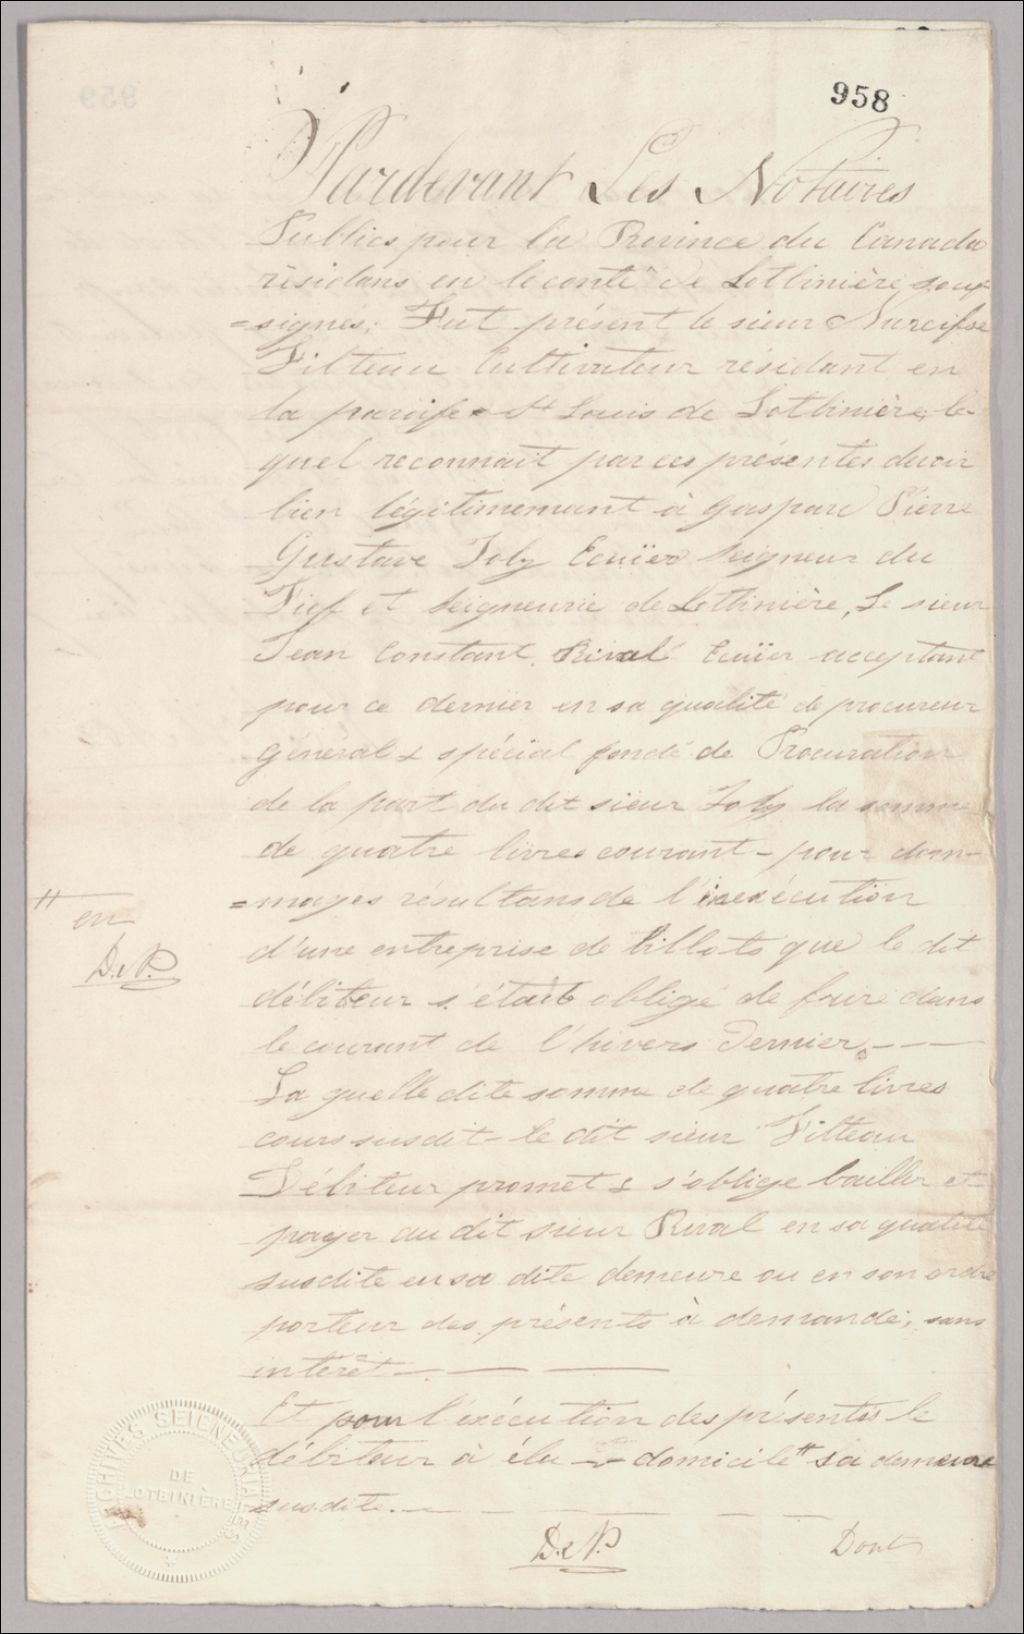 958
Pardevant Les Notaires
Publics pour la Province du Canada
résidans en le conté de Lotbinière sous-
=signés; Fut présent le sieur Narcisse
Filteau Cultivateur résidant en
la paroisse St Louis de Lotbinière, le-
quel reconnait par ces présentes devoir
bien légitimemant à Gaspard Pierre
Gustave Joly Ecuïer Seigneur du
Fief et Seigneurie de Lotbinière, Le sieur
Jean Constant Rival Ecuïer acceptant
pour ce dernier en sa qualité de procureur
général & spécial fondé de Procuration
de la part du dit sieur Joly la somme
de quatre livres courant - pour dom-
=mages résultans de l'inexécution
d'une entreprise de billots que le dit
débiteur s'était obligé de faire dans
le courant de l'hivers dernier. - - -
La quelle dite somme de quatre livres
cours susdit - le dit sieur Filteau
Débiteur promet & s'oblige bailler et
payer au dit sieur Rival en sa qualité
susdite en sa dite demeure ou en son ordre
porteur des présents à demande, sans
intérêt - - -
Et pour l'exécution des présentes le
débiteur à élu domicile # sa demeure
susdite. - - -
# en
D. e N.P.
D. e N.P.
Dont
ARCHIVES SEIGNEURIALES
DE
LOTBINIÈRE
959